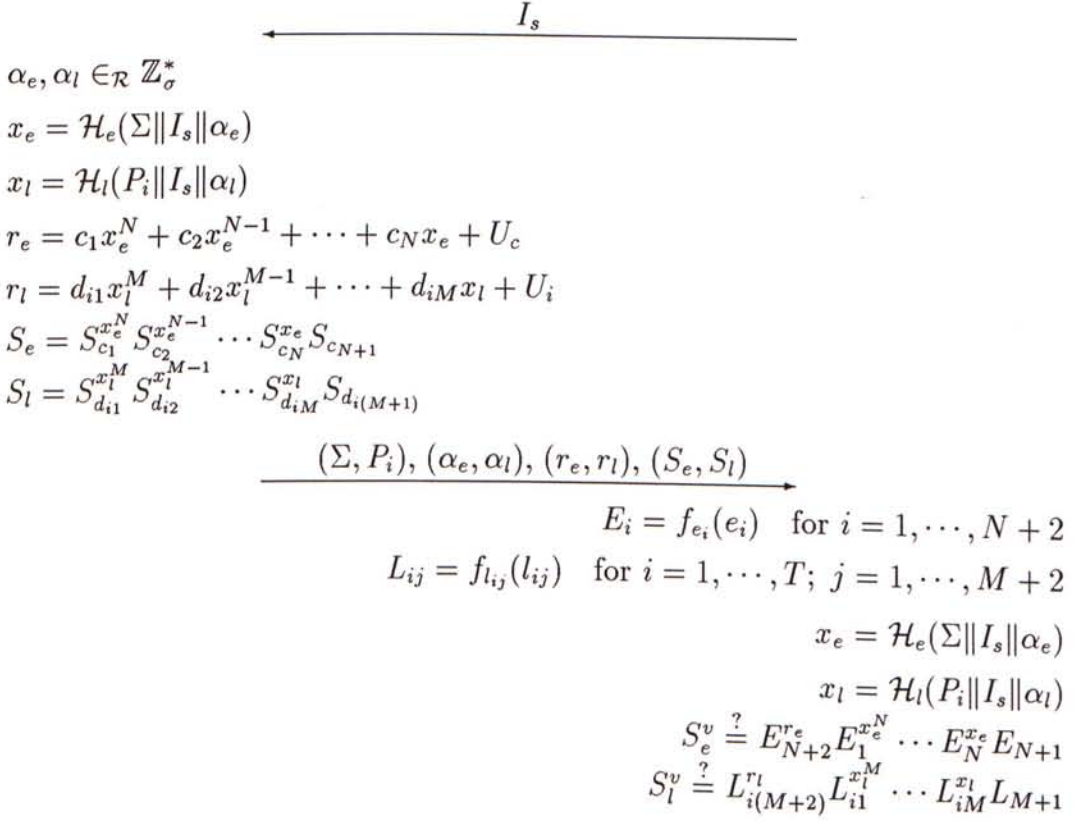 I_s
α_e, α_l ∈_ℛ ℤ*_σ
x_e = ℋ_e(Σ‖I_s‖α_e)
x_l = ℋ_l(P_i‖I_s‖α_l)
r_e = c_1x_e^N + c_2x_e^{N−1} + ⋯ + c_Nx_e + U_c
r_l = d_{i1}x_l^M + d_{i2}x_l^{M−1} + ⋯ + d_{iM}x_l + U_i
S_e = S_{c_1}^{x_e^N} S_{c_2}^{x_e^{N−1}} ⋯ S_{c_N}^{x_e} S_{c_{N+1}}
S_l = S_{d_{i1}}^{x_l^M} S_{d_{i2}}^{x_l^{M−1}} ⋯ S_{d_{iM}}^{x_l} S_{d_{i(M+1)}}
(Σ, P_i), (α_e, α_l), (r_e, r_l), (S_e, S_l)
E_i = f_{e_i}(e_i) for i = 1, ⋯, N + 2
L_{ij} = f_{l_{ij}}(l_{ij}) for i = 1, ⋯, T; j = 1, ⋯, M + 2
x_e = ℋ_e(Σ‖I_s‖α_e)
x_l = ℋ_l(P_i‖I_s‖α_l)
S_e^v ≟ E_{N+2}^{r_e} E_1^{x_e^N} ⋯ E_N^{x_e} E_{N+1}
S_l^v ≟ L_{i(M+2)}^{r_l} L_{i1}^{x_l^M} ⋯ L_{iM}^{x_l} L_{M+1}